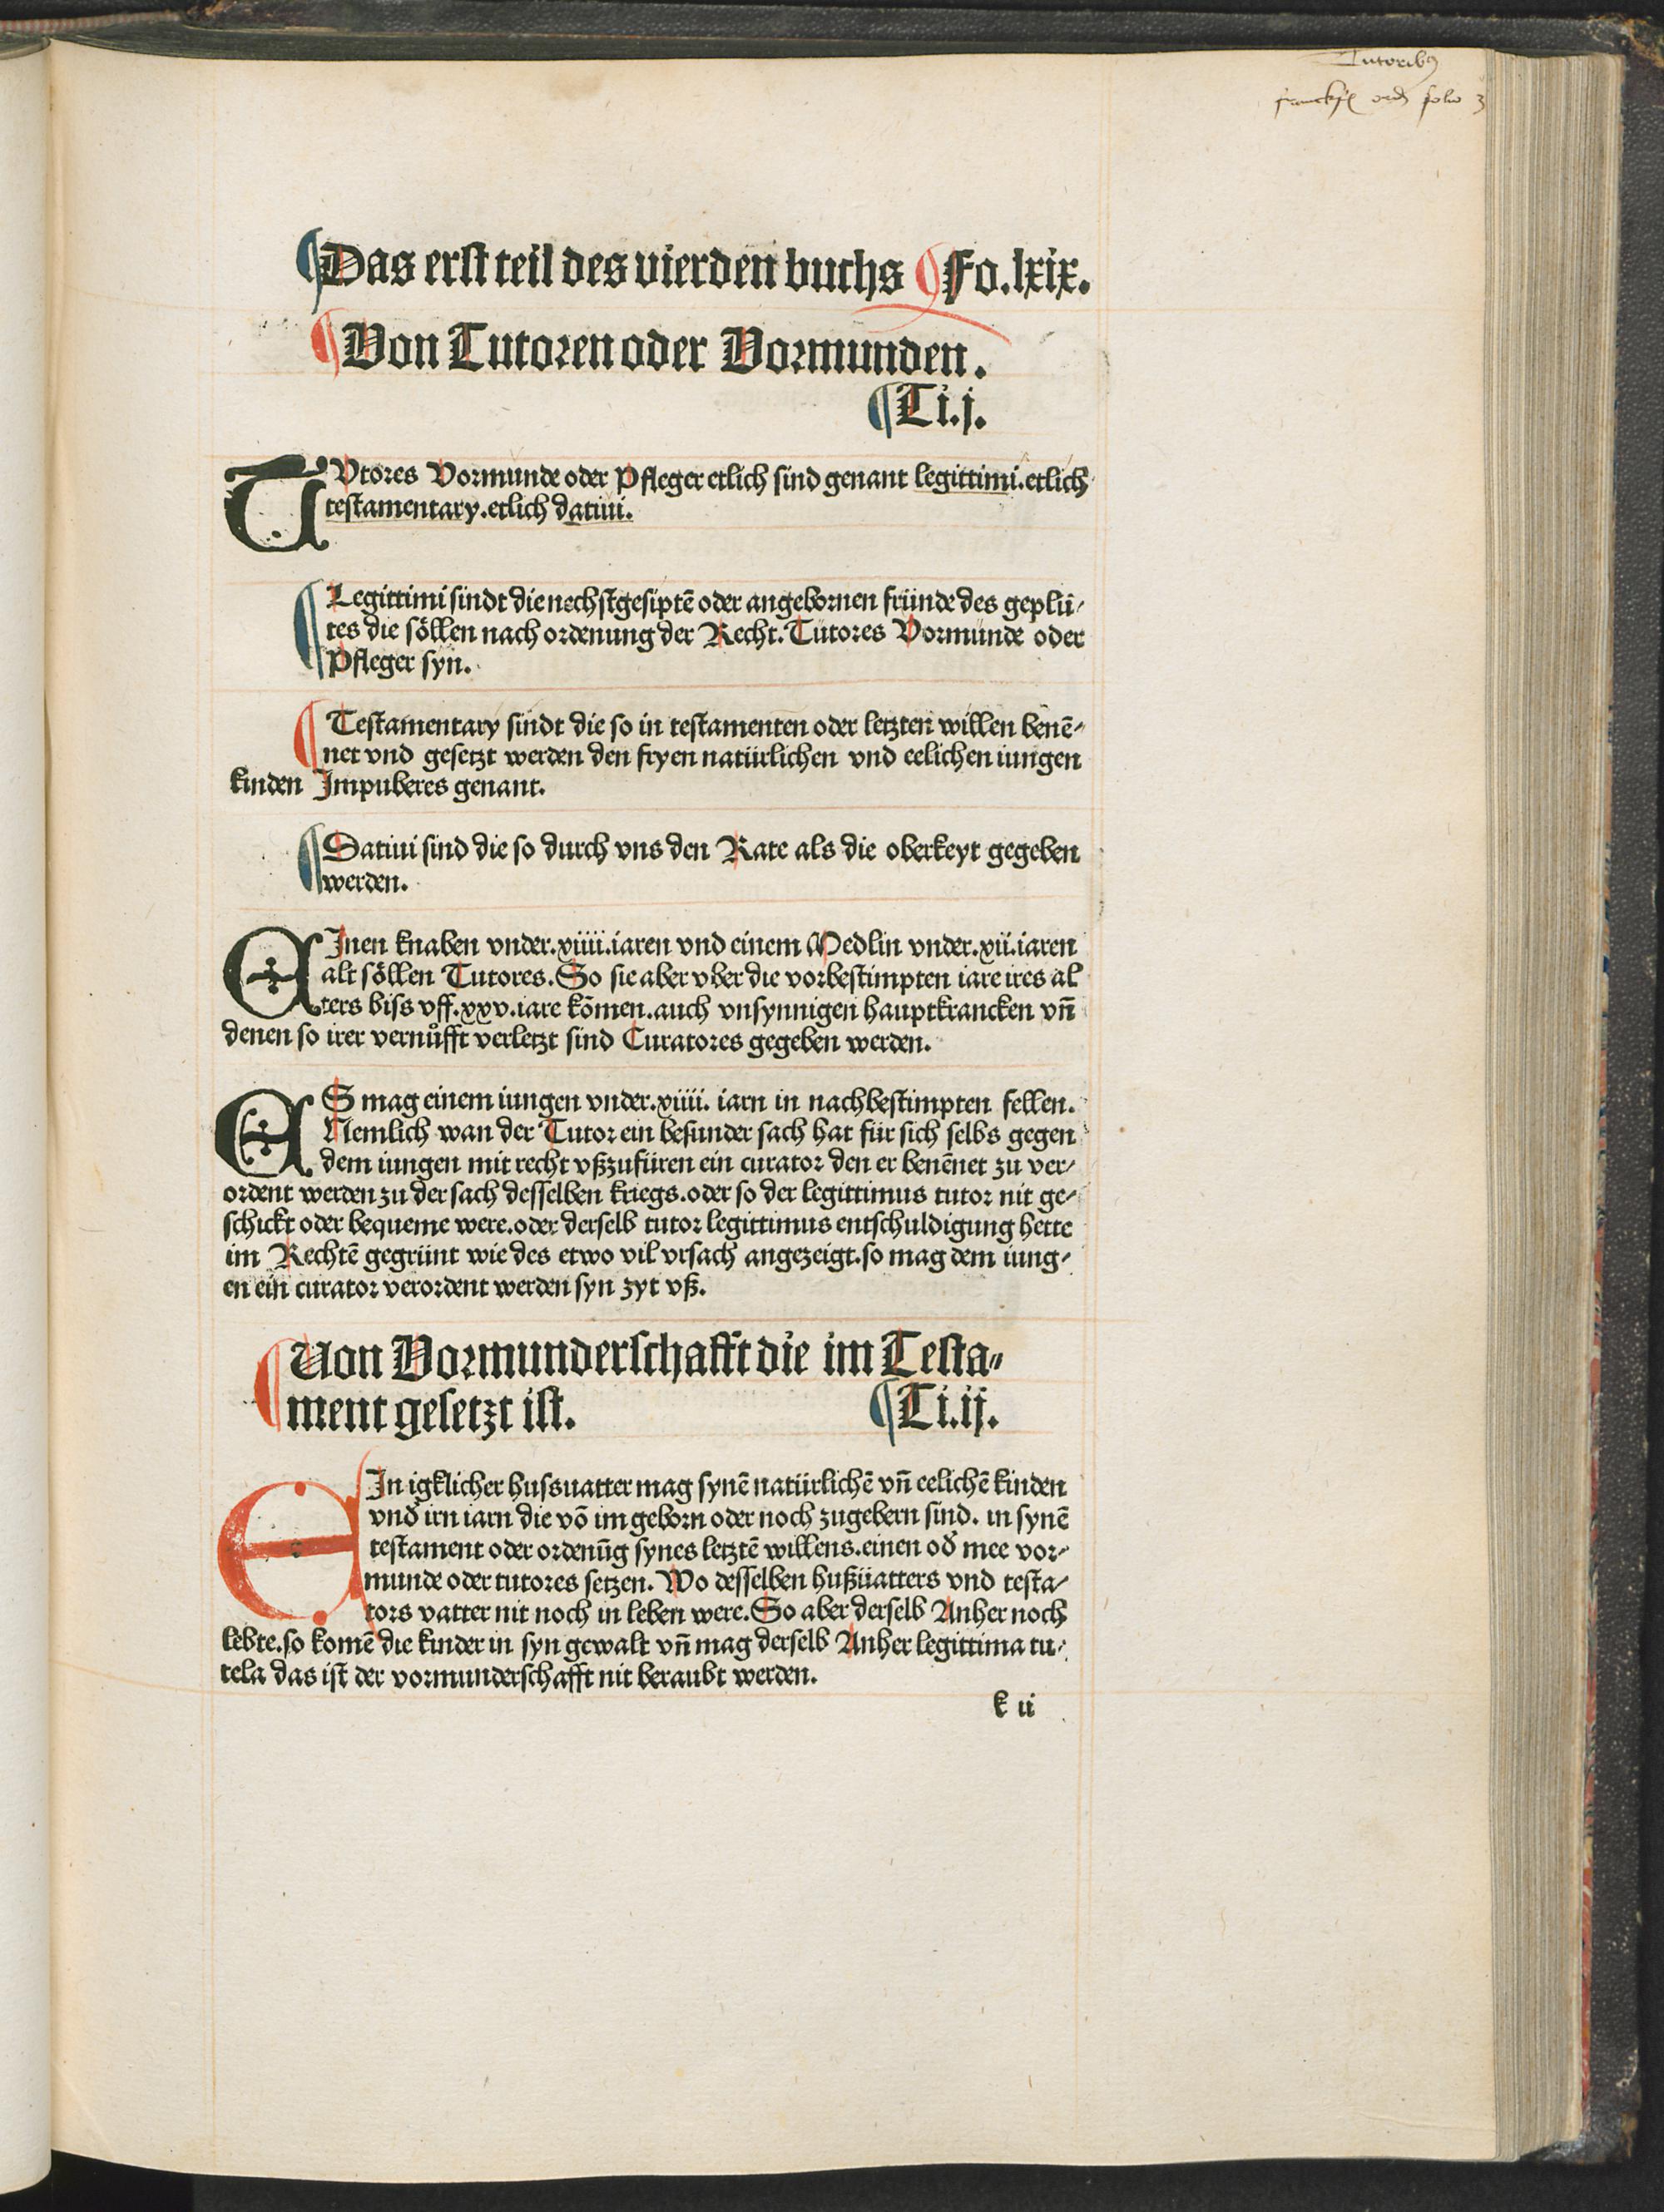 Tutoribꝰ
folio 3
¶Das erst teil des vierden buchs ¶Fo.lxix.
¶Von Tutoren oder Vormunden.
¶Ti.j.
TVtores Vormunde oder Pfleger etlich sind genant legittimi.etlich
testamentary.etlich datiui.
¶Legittimi sindt die nechstgesiptē oder angebornen fründe des geplü⸗
tes die söllen nach ordenung der Recht. Tutores Vormunde oder
Pfleger syn.
¶Testamentary sindt die so in testamenten oder letzten willen benē⸗
net vnd gesetzt werden den fryen natürlichen vnd eelichen iungen
kinden Impuberes genant.
¶Datiui sind die so durch vns den Rate als die oberkeyt gegeben
werden.
EJnen knaben vnder.xiiii.iaren vnd einem Medlin vnder.xii.iaren
alt söllen Tutores. So sie aber vber die vorbestimpten iare ires al
ters biss vff.xxv.iare kōmen.auch vnsynnigen hauptkrancken vn̄
denen so irer vernůfft verletzt sind Curatores gegeben werden.
ES mag einem iungen vnder.xiiii. iarn in nachbestimpten fellen.
Nemlich wan der Tutor ein besunder sach hat für sich selbs gegen
dem iungen mit recht vßzufüren ein curator den er benēnet zu ver⸗
ordent werden zu der sach desselben kriegs.oder so der legittimus tutor nit ge⸗
schickt oder bequeme were.oder derselb tutor legittimus entschuldigung hette
im Rechtē gegrünt wie des etwo vil vrsach angezeigt.so mag dem iung⸗
en ein curator verordent werden syn zyt vß.
¶Von Vormunderschafft die im Testa⸗
ment gesetzt ist. ¶Ti.ij.
EJn igklicher hussuatter mag synē natürlichē vn̄ eelichē kinden
vnd̓ irn iarn die vō im geborn oder noch zugebern sind. in synē
testament oder ordenūg synes letztē willens.einen od̓ mee vor⸗
munde oder tutores setzen. Wo desselben hußüatters vnd testa⸗
tors vatter nit noch in leben were. So aber derselb Anher noch
lebte.so komē die kinder in syn gewalt vn̄ mag derselb Anher legittima tu⸗
tela das ist der vormunderschafft nit beraubt werden.
k ii